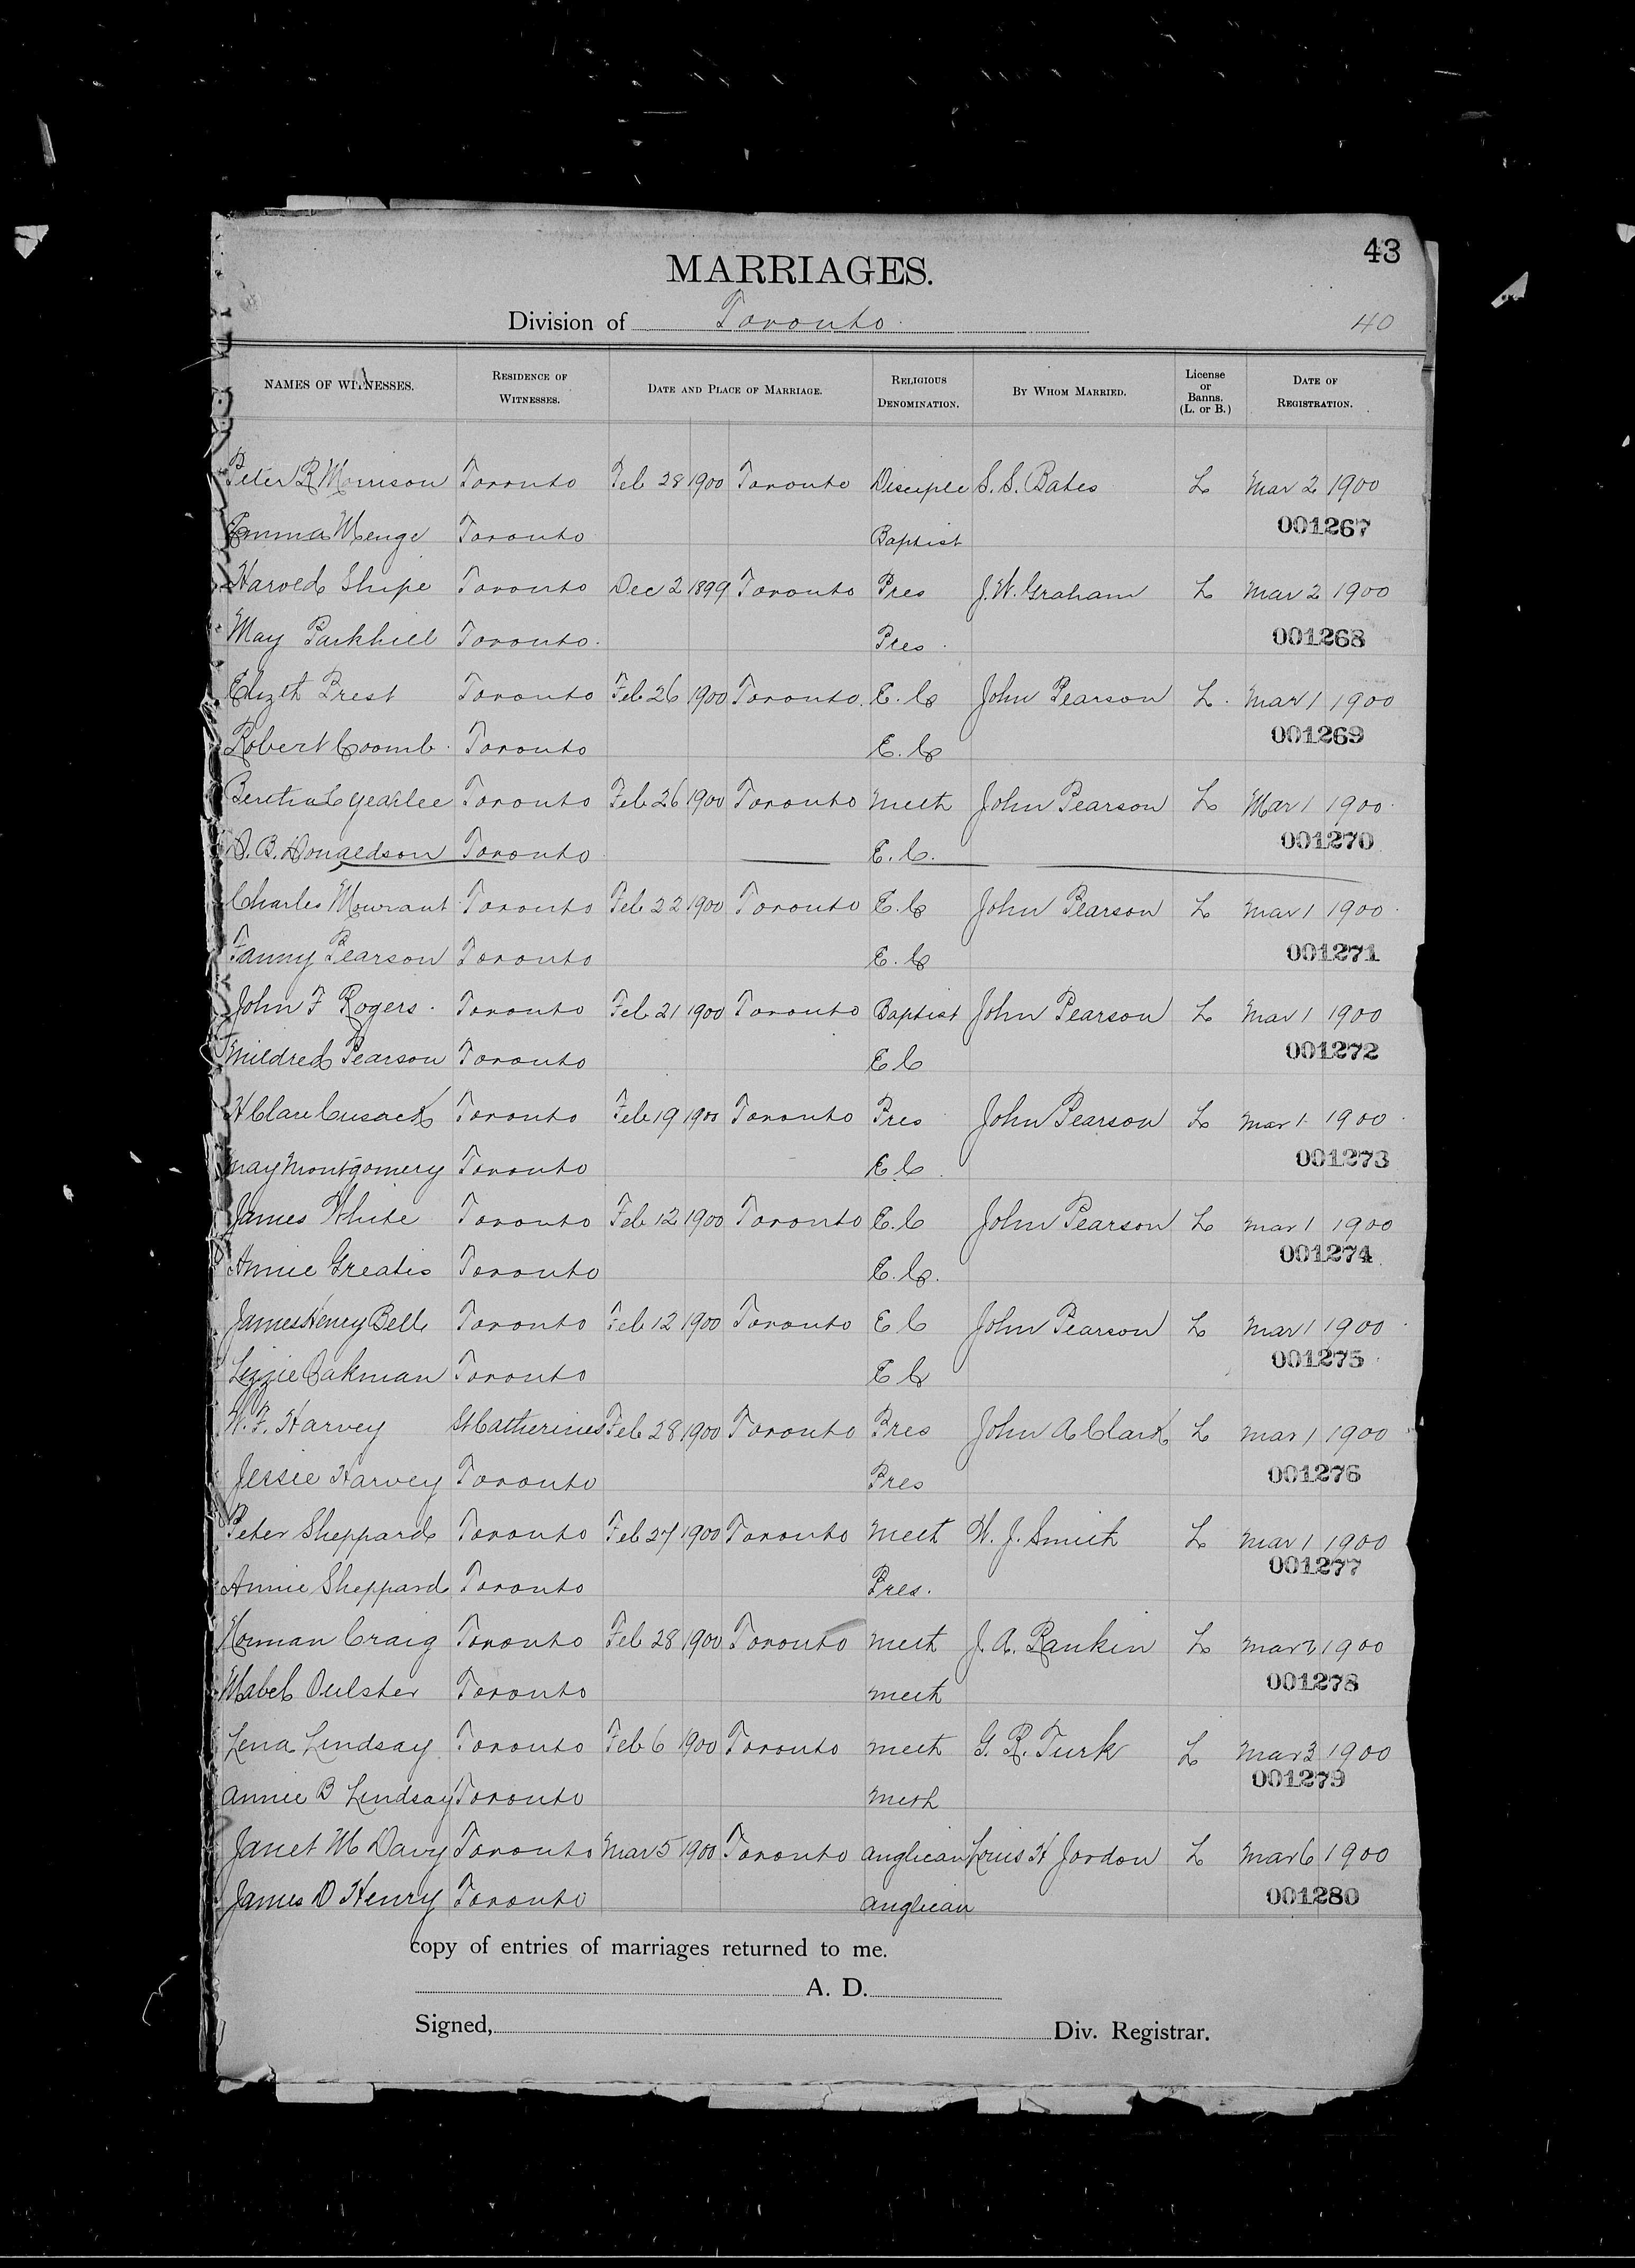 43
MARRIAGES.
Division of Toronto
40
NAMES OF WITNESSES. RESIDENCE OF WITNESSES. DATE AND PLACE OF MARRIAGE. RELIGIOUS DENOMINATION. BY WHOM MARRIED. License or Banns. (L. or B.) DATE OF REGISTRATION.
Peter R Morrison Toronto Feb 28 1900 Toronto Disciple S. S. Bates L Mar 2 1900
Emma Menge Toronto Baptist 001267
Harold Shipe Toronto Dec 2 1899 Toronto Pres J. W. Graham L Mar 2 1900
May Parkhill Toronto Pres 001268
Elizth Prest Toronto Feb 26 1900 Toronto E. C John Pearson L Mar 1 1900
Robert Coomb Toronto E. C 001269
Bertha L Toronto Feb 26 1900 Toronto Meth John Pearson L Mar 1 1900
B. Donaldson Toronto E. C. 001270
Charles Mourant Toronto Feb 22 1900 Toronto E. C John Pearson L Mar 1 1900
Fanny Pearson Toronto E. C 001271
John F Rogers Toronto Feb 21 1900 Toronto Baptist John Pearson L Mar 1 1900
Mildred Pearson Toronto E C 001272
H Clare Cusack Toronto Feb 19 1900 Toronto Pres John Pearson L Mar 1 1900
May Montgomery Toronto E C 001273
James White Toronto Feb 12 1900 Toronto E. C John Pearson L Mar 1 1900
Annie Greatis Toronto E. C. 001274
James Henry Bell Toronto Feb 12 1900 Toronto E C John Pearson L Mar 1 1900
Lizzie Oakman Toronto E C 001275
W. F. Harvey St Catherines Feb 28 1900 Toronto Pres John A Clark L Mar 1 1900
Jessie Harvey Toronto Pres 001276
Peter Sheppard Toronto Feb 27 1900 Toronto Meth W. J. Smith L Mar 1 1900
Annie Sheppard Toronto Pres. 001277
Norman Craig Toronto Feb 28 1900 Toronto Meth J. A. Rankin L Mar 1900
Mabel Oulster Toronto Meth 001278
Lena Lindsay Toronto Feb 6 1900 Toronto Meth G. R. Turk L Mar 3 1900
Annie B Lindsay Toronto Meth 001279
Janet M Davy Toronto Mar 5 1900 Toronto Anglican Louis H Jordon L Mar 6 1900
James D Henry Toronto Anglican 001280
copy of entries of marriages returned to me.
A. D.
Signed, Div. Registrar.